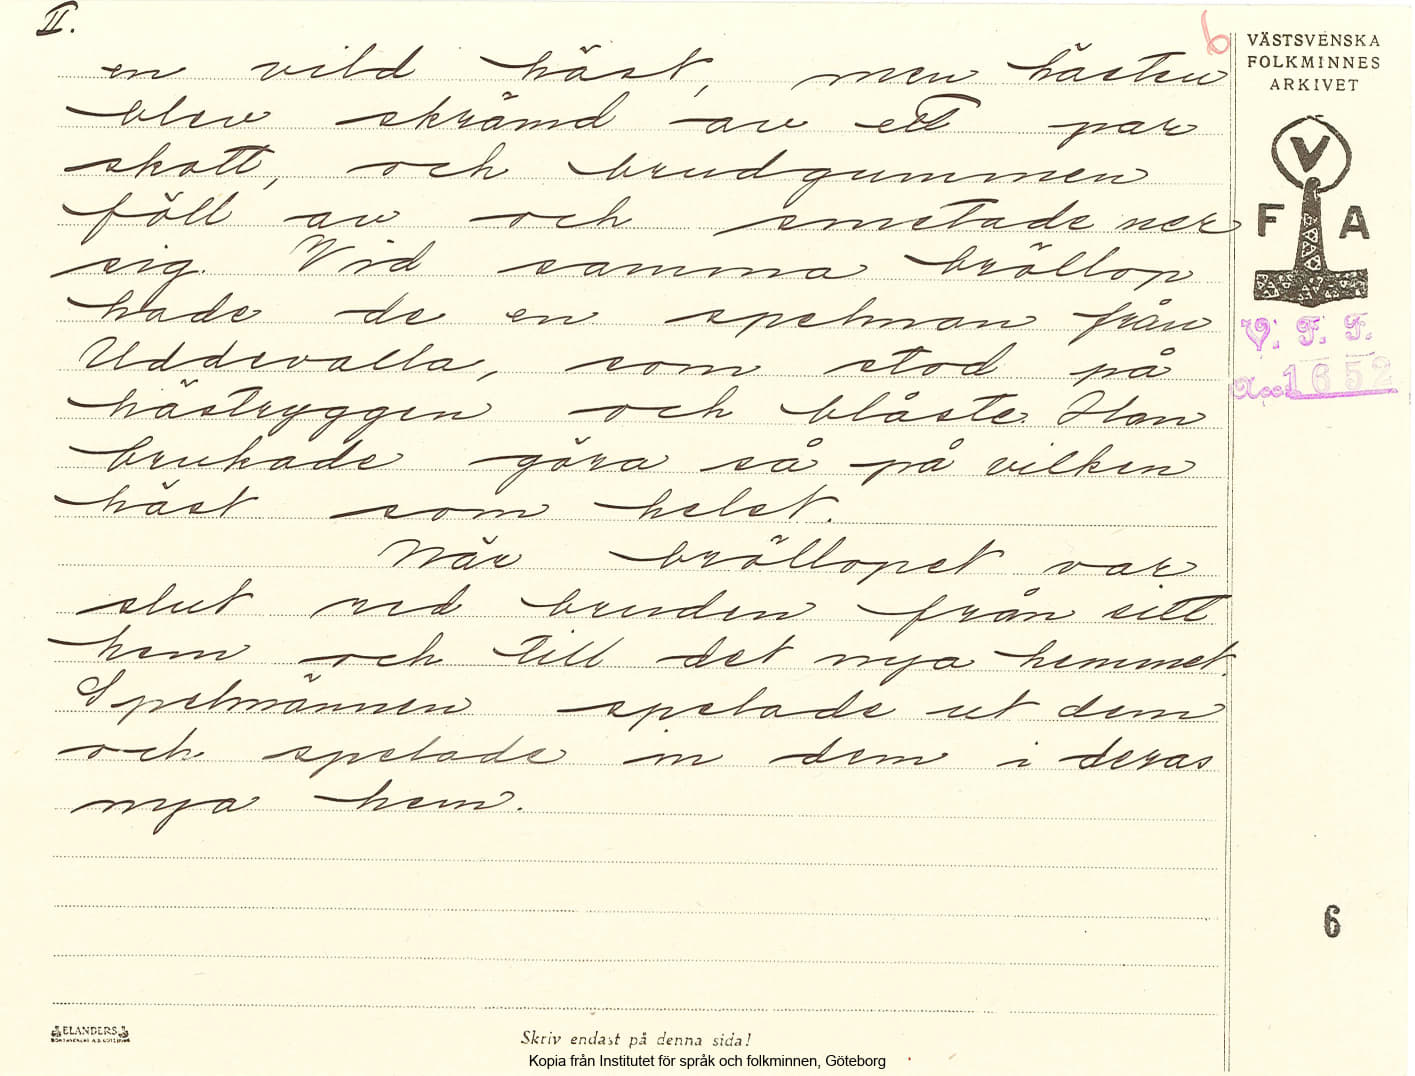 II.
6
en vild häst, men hästen
blev skrämd av ett par
skott, och brudgummen
föll av och smetade ner
sig. Vid samma bröllop
hade de en spelman från
Uddevalla, som stod på
hästryggen och blåste. Han
brukade göra så på vilken
häst som helst.
När bröllopet var
slut red bruden från sitt
hem och till det nya hemmet.
Spelmännen spelade ut dem
och spelade in dem i deras
nya hem.
VÄSTSVENSKA
FOLKMINNES
ARKIVET
V
F A
V. F. F.
Acc. 1652
6
ELANDERS
Skriv endast på denna sida!
Kopia från Institutet för språk och folkminnen, Göteborg